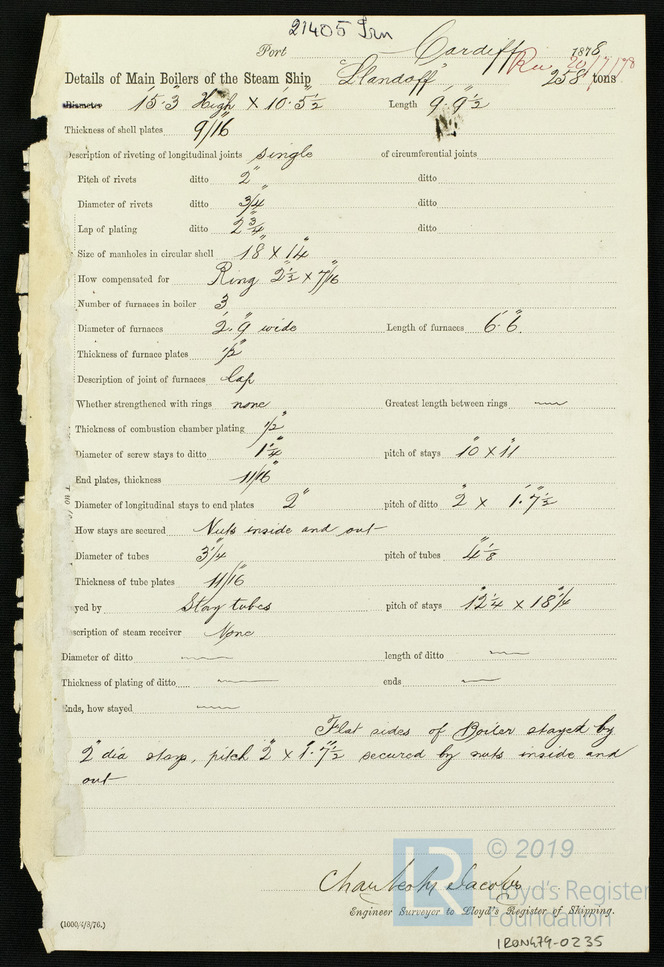 21405 Irn
Port Cardiff 1878
Rec 20/7/78
Details of Main Boilers of the Steam Ship "Llandoff" 258 tons
Diameter 15'·3" High × 10'·5½" Length 9'·9½"
Thickness of shell plates 9/16"
Description of riveting of longitudinal joints single of circumferential joints
Pitch of rivets ditto 2" ditto
Diameter of rivets ditto 3/4" ditto
Lap of plating ditto 2¾" ditto
Size of manholes in circular shell 18" × 14"
How compensated for Ring 2½" × 7/16"
Number of furnaces in boiler 3
Diameter of furnaces 2'·9" wide Length of furnaces 6'·6"
Thickness of furnace plates ½"
Description of joint of furnaces Lap
Whether strengthened with rings none Greatest length between rings —
Thickness of combustion chamber plating ½"
Diameter of screw stays to ditto 1¼" pitch of stays 10" × 11"
End plates, thickness 11/16"
Diameter of longitudinal stays to end plates 2" pitch of ditto 2" × 1'·7½"
How stays are secured Nuts inside and out
Diameter of tubes 3¼" pitch of tubes 4⅛"
Thickness of tube plates 11/16"
yed by Stay tubes pitch of stays 12¼" × 18¼"
escription of steam receiver None
Diameter of ditto — length of ditto —
Thickness of plating of ditto — ends —
Ends, how stayed —
Flat sides of Boiler stayed by
2" dia stays, pitch 2" × 1'·7½" secured by nuts inside and
out
© 2019
LR Lloyd's Register
Foundation
Jacobs
Engineer Surveyor to Lloyd's Register of Shipping.
(1000/4/8/76.)
IRON479-0235